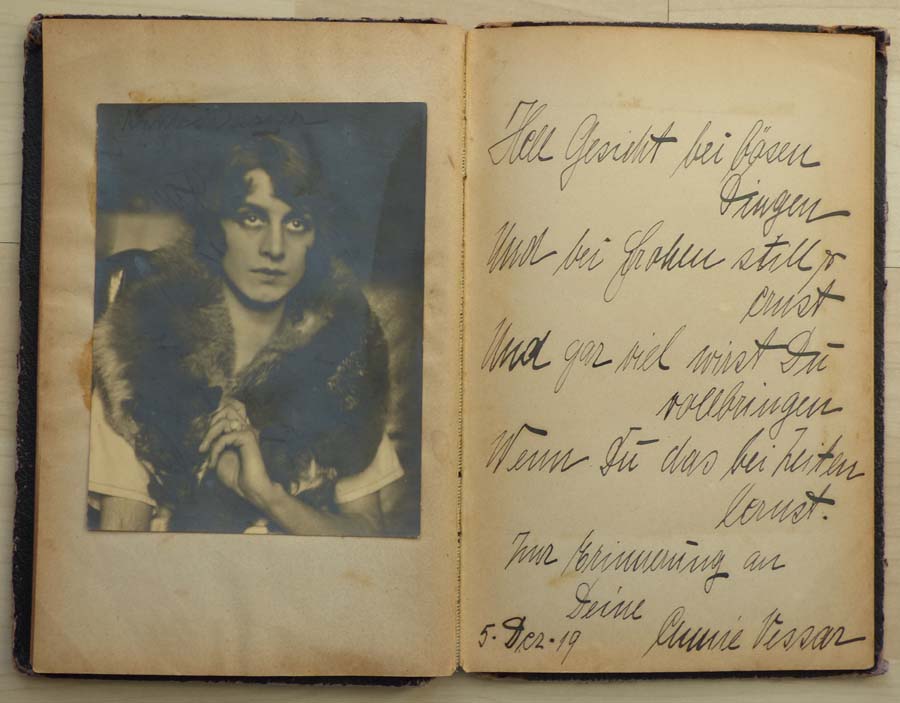 Hell Gesicht bei bösen
Dingen
Und bei frohen still u
ernst
Und gar viel wirst Du
vollbringen
Wenn Du das bei Zeiten
lernst.
Zur Erinnerung an
Deine
5. Dez. 19 Annie Vessar